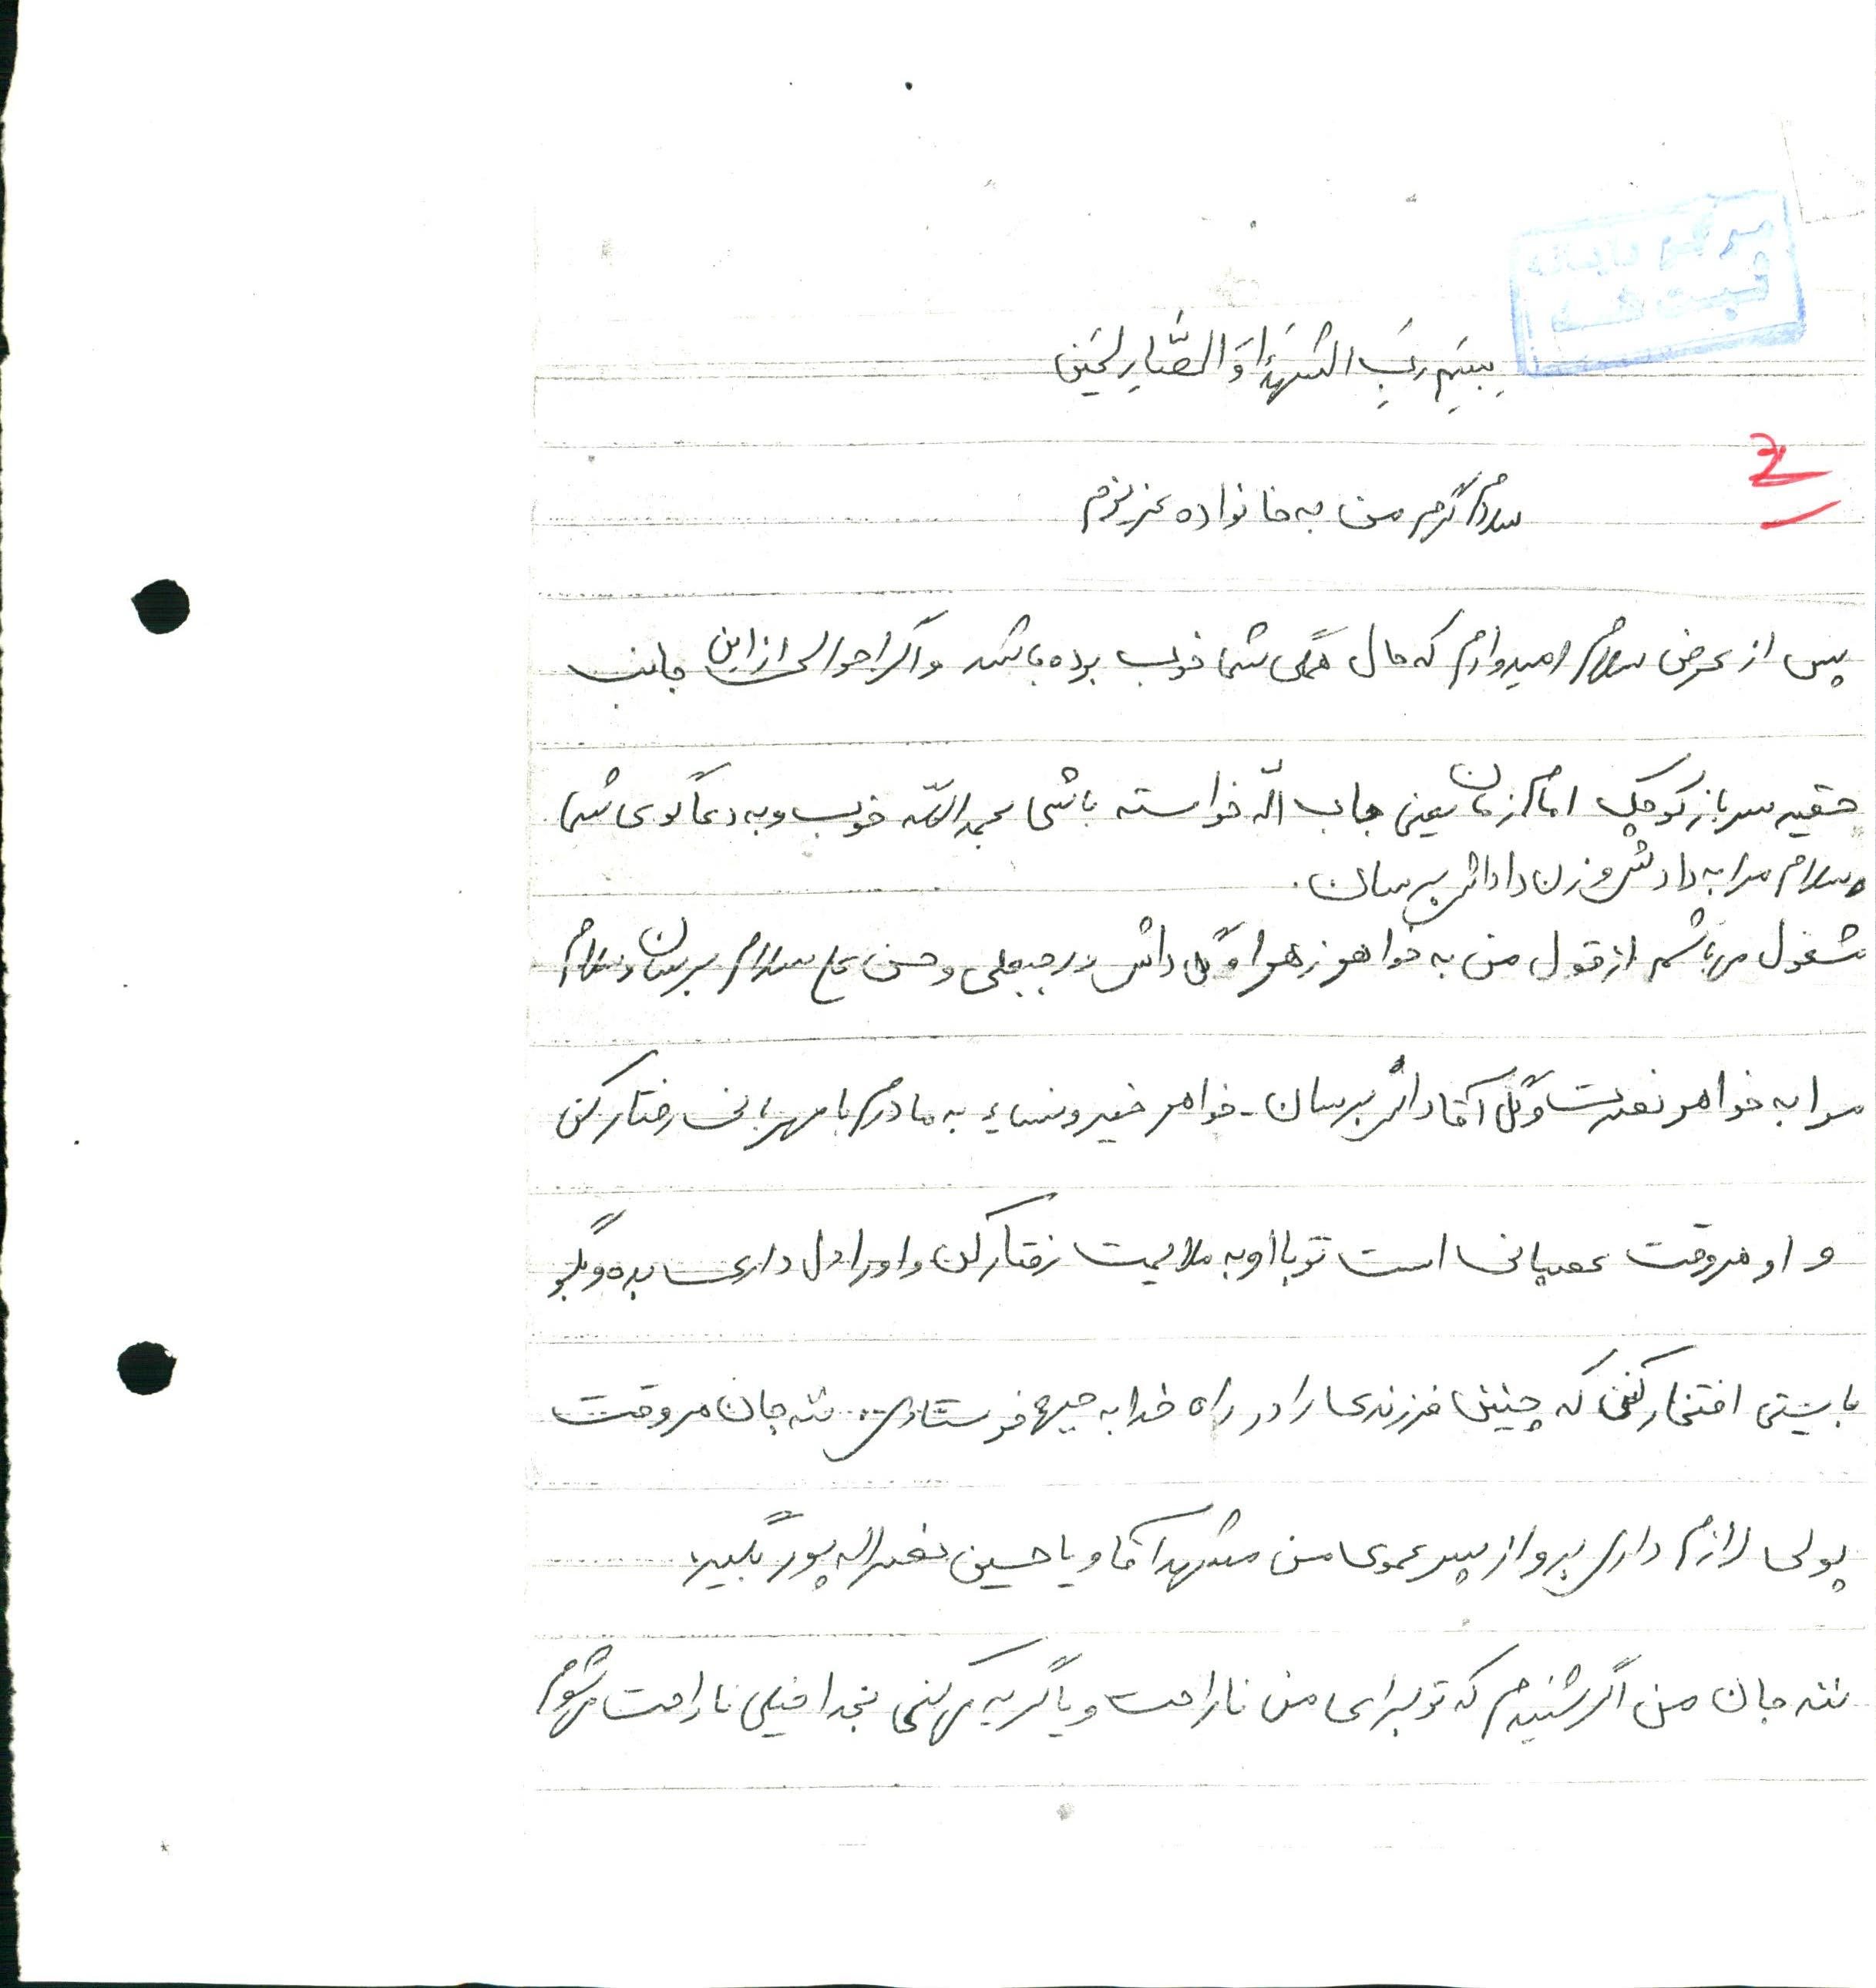 ثبت شد
بِسْمِ رَبِّ الشُّهَدَاء وَ الصّارِلحین
سلام گرم من به خانواده عزیزم
پس از عرض سلام امیدوارم که حال همگی شما خوب بوده باشد و اگر احوالی از این جانب
حقیر سرباز کوچک امام زمان یعنی جاب اله خواسته باشی بحمدالله خوب و به دعاگوی شما
و سلام مرا به داداش و زن داداش برسان.
مشغول میباشم از قول من به خواهر زهرا و گل داش و رجبعلی و حسن علی سلام برسان و سلام
مرا به خواهر نصرت و گل آقا داش برسان - خواهر خیرونساء به مادرم با مهربانی رفتار کن
و او هروقت عصبانی است تو با او به ملایمت رفتار کن و او را دل داری بده و بگو
بایستی افتخار کنی که چنین فرزندی را در راه خدا به جبهه فرستادی. ننه جان هروقت
پولی لازم داری برو از پسر عموی من مشهدآقا و یا حسین نصراله پور بگیر.
ننه جان من اگر شنیدم که تو برای من ناراحت و یا گریه میکنی بخدا خیلی ناراحت میشوم